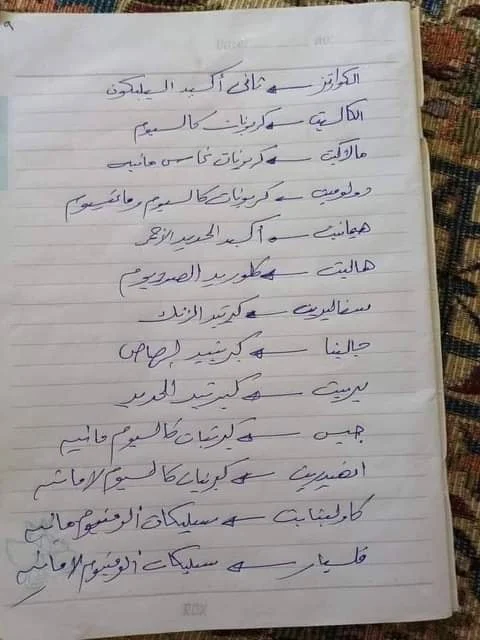 ٩
الكوارتز ← ثانى أكسيد السيليكون
الكالسيت ← كربونات كالسيوم
مالاكيت ← كربونات نحاس مائيه
دولوميت ← كربونات كالسيوم وماغنسيوم
هيماتيت ← أكسيد الحديد الأحمر
هاليت ← كلوريد الصوديوم
سفاليريت ← كبرتيد الزنك
جالينا ← كبرتيد الرصاص
بيريت ← كبرتيد الحديد
جبس ← كبرتيات كالسيوم مائيه
انهيدريت ← كبرتيات كالسيوم لامائيه
كاولينايت ← سيليكات ألومنيوم مائيه
فلسبار ← سيليكات ألومنيوم لامائيه